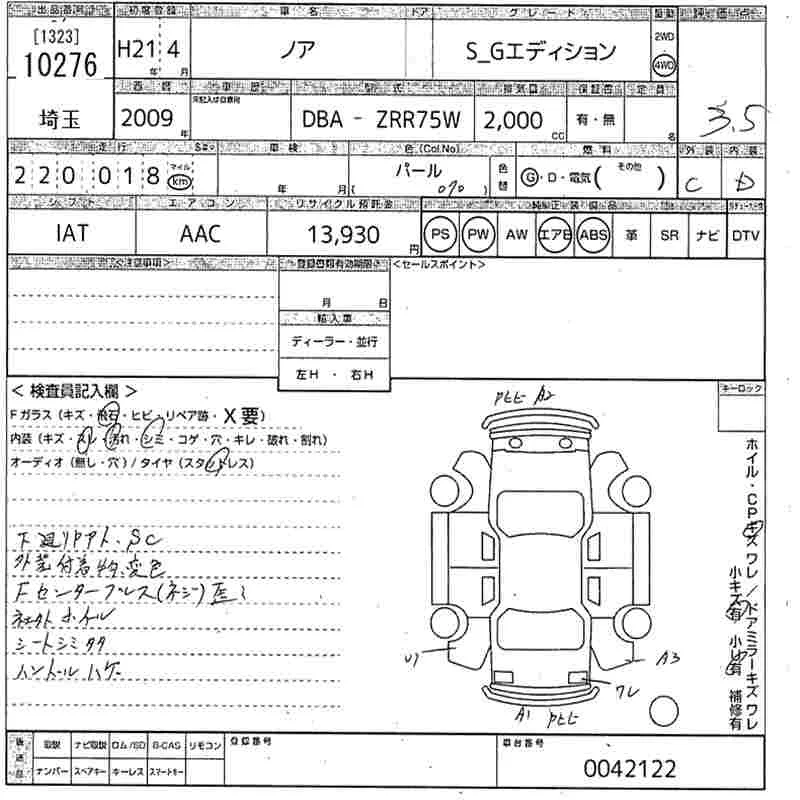 出品番号 初度登録 車名 ドア グレード 駆動 評価点
[1323]
10276
H21 4
年 月
ノア
S_Gエディション
2WD
4WD
3.5
西暦 車歴 型式 排気量 保証書 定員
未記入は自家用
埼玉
2009 年
DBA - ZRR75W
2,000 cc
有・無
名
走行 車検 色(Col.No) 燃料 外装 内装
220,018
マイル
km
年 月
パール
( 070 )
色替
G・D・電気( その他 )
C D
シフト エアコン リサイクル預託金 純正装備品
IAT AAC 13,930 円
PS PW AW エアB ABS 革 SR ナビ DTV
<注意事項> 登録書類有効期限 <セールスポイント>
月 日
輸入車
ディーラー・並行
左H ・ 右H
< 検査員記入欄 >
キーロック
Fガラス (キズ・飛石・ヒビ・リペア跡・X要)
内装 (キズ・スレ・汚れ・シミ・コゲ・穴・キレ・破れ・割れ)
オーディオ (無し・穴) / タイヤ (スタッドレス)
下廻りサアト、SC
外装付着物、変色
シートシミ
ハンドルハゲ
A2
A3
ワレ
A1
ホイル・CPキズ ワレ / ドアミラーキズ ワレ
小キズ有 小凹有 補修有
後送品
取説 ナビ取説 ロム/SD B-CAS リモコン
ナンバー スペアキー キーレス スマートキー
登録番号
車台番号
0042122